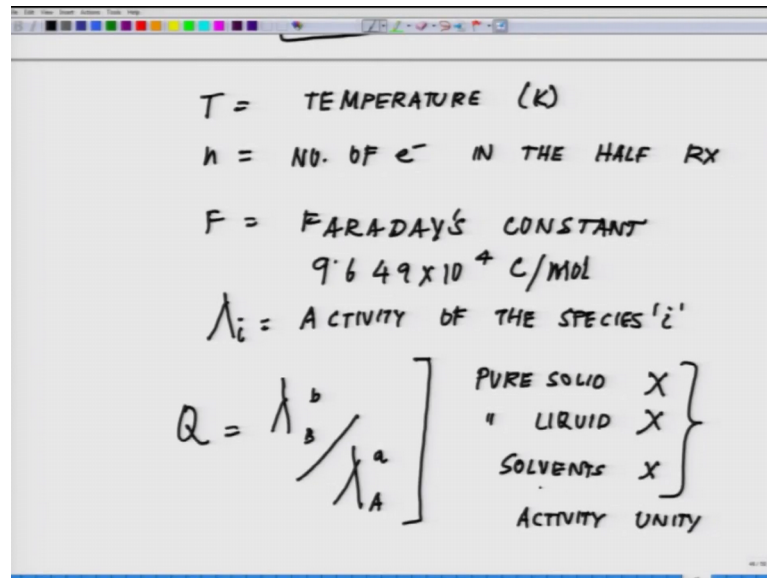 Edit View Insert Actions Tools Help
T = TEMPERATURE (K)
n = NO. OF e⁻ IN THE HALF RX
F = FARADAY'S CONSTANT
9.649 x 10⁴ C/MOL
λᵢ = ACTIVITY OF THE SPECIES 'i'
Q = λ_B^b / λ_A^a ]
PURE SOLID X
" LIQUID X
SOLVENTS X }
ACTIVITY UNITY